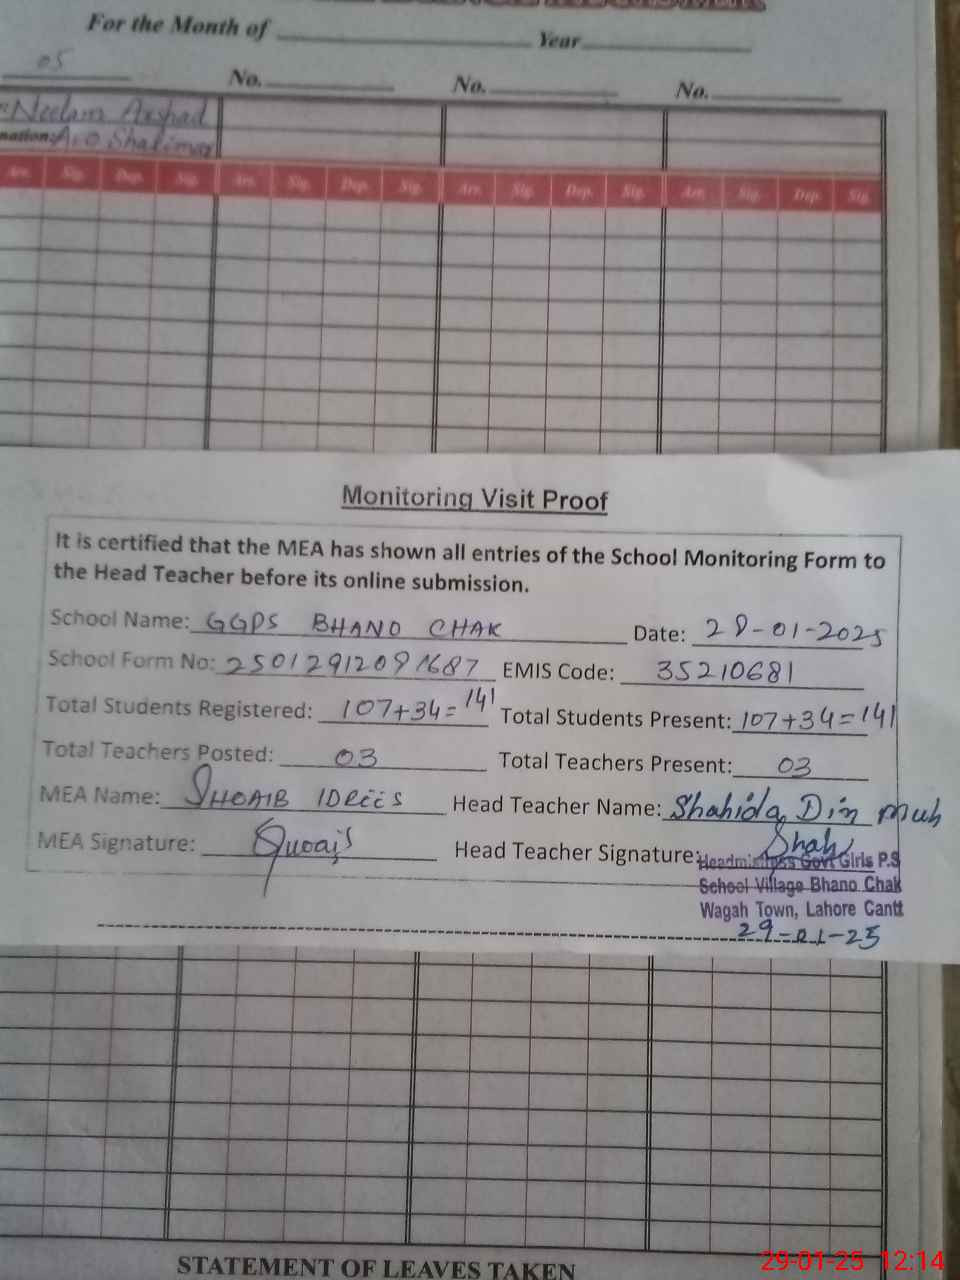 For the Month of Year
05
No. No. No.
Neelam Arshad
nation: AEO Shalimar
Arr. Sig. Dep. Sig. Arr. Sig. Dep. Sig. Arr. Sig. Dep. Sig. Arr. Sig. Dep. Sig.
Monitoring Visit Proof
It is certified that the MEA has shown all entries of the School Monitoring Form to
the Head Teacher before its online submission.
School Name: GGPS BHANO CHAK Date: 29-01-2025
School Form No: 25012912091687 EMIS Code: 35210681
Total Students Registered: 107+34=141 Total Students Present: 107+34=141
Total Teachers Posted: 03 Total Teachers Present: 03
MEA Name: SHOAIB IDREES Head Teacher Name: Shahida Din Muh
MEA Signature: Head Teacher Signature: Shah
Headmistress Govt Girls P.S
School Village Bhano Chak
Wagah Town, Lahore Cantt
29-01-25
STATEMENT OF LEAVES TAKEN
29-01-25 12:14